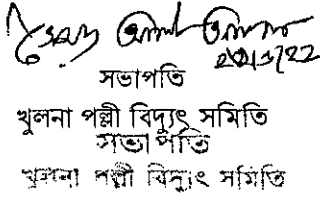 সভাপতি
খুলনা পল্লী বিদ্যুৎ সমিতি
সভাপতি
খুলনা পল্লী বিদ্যুৎ সমিতি